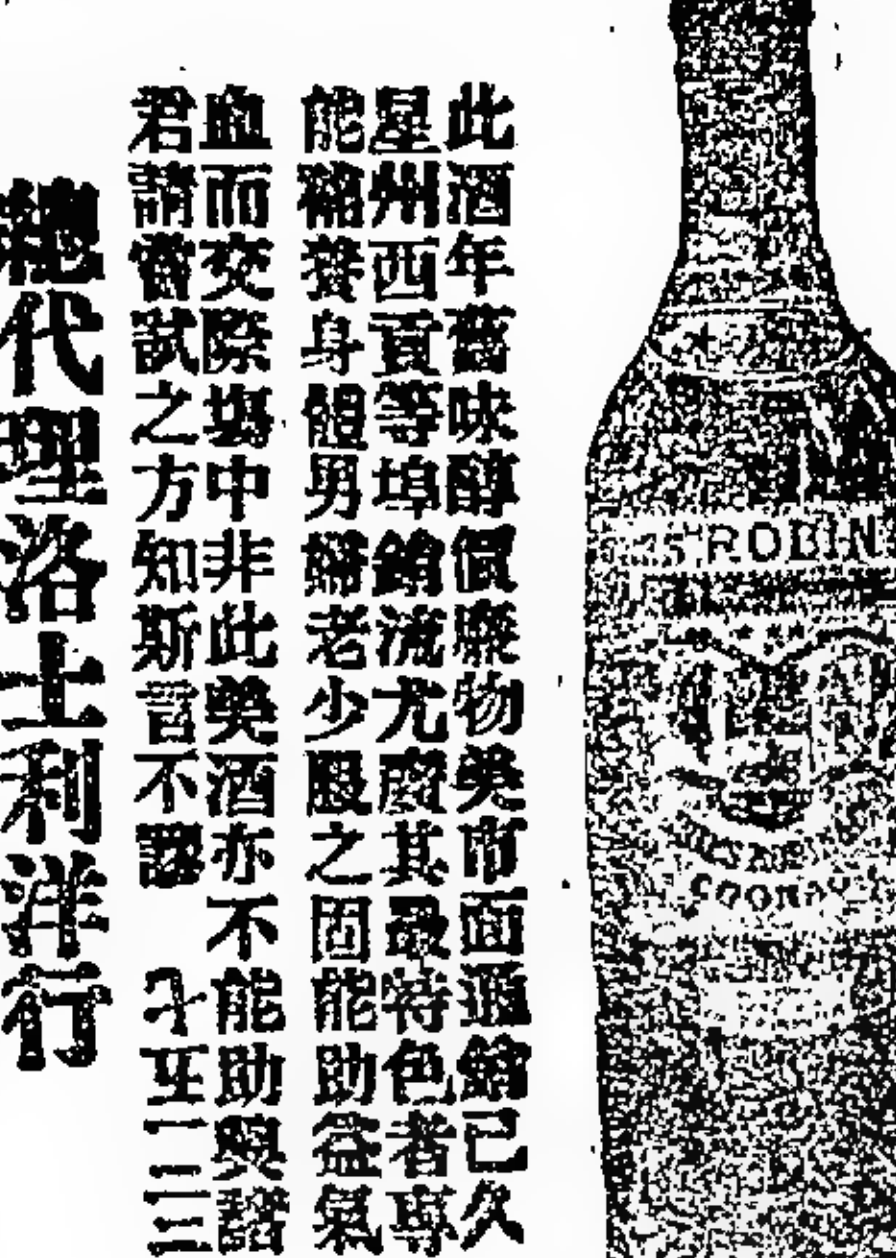 此酒年舊味醇價廉物美市面通銷已久
星州西貢等埠銷流尤廣其最特色者專
能補養身體男婦老少服之固能助益氣
血而交際塲中非此美酒亦不能助興諸
君請嘗試之方知斯言不謬
總代理洛士利洋行
ROBIN